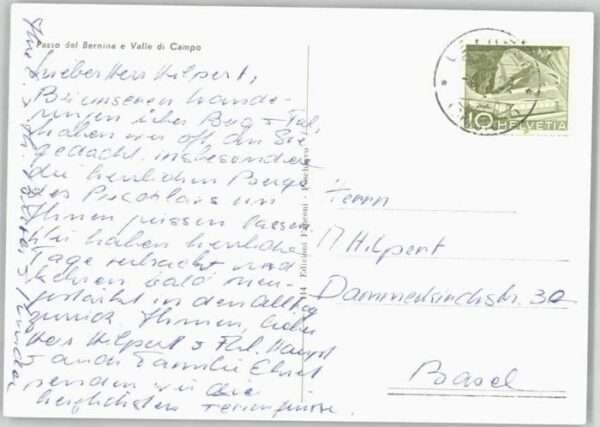 Passo del Bernina e Valle di Campo
Lieber Herr Hilpert,
Bei unseren Wande-
rungen über Berg + Tal,
haben wir oft an Sie
gedacht, insbesondere
die herrlichen Berge
des Puschlavs um
Ihnen grüssen lassen.
Wir haben herrliche
Tage verbracht und
kehren bald neu-
gestärkt in den Alltag
zurück. Ihnen, lieber
Herr Hilpert + Frl. Haupt
+ auch Familie Ehret
senden wir die
herzlichsten Feriengrüsse.
Ihre
Edizioni Fanconi - Poschiavo
10
HELVETIA
Herrn
Hilpert
Dammerkirchstr. 32
Basel